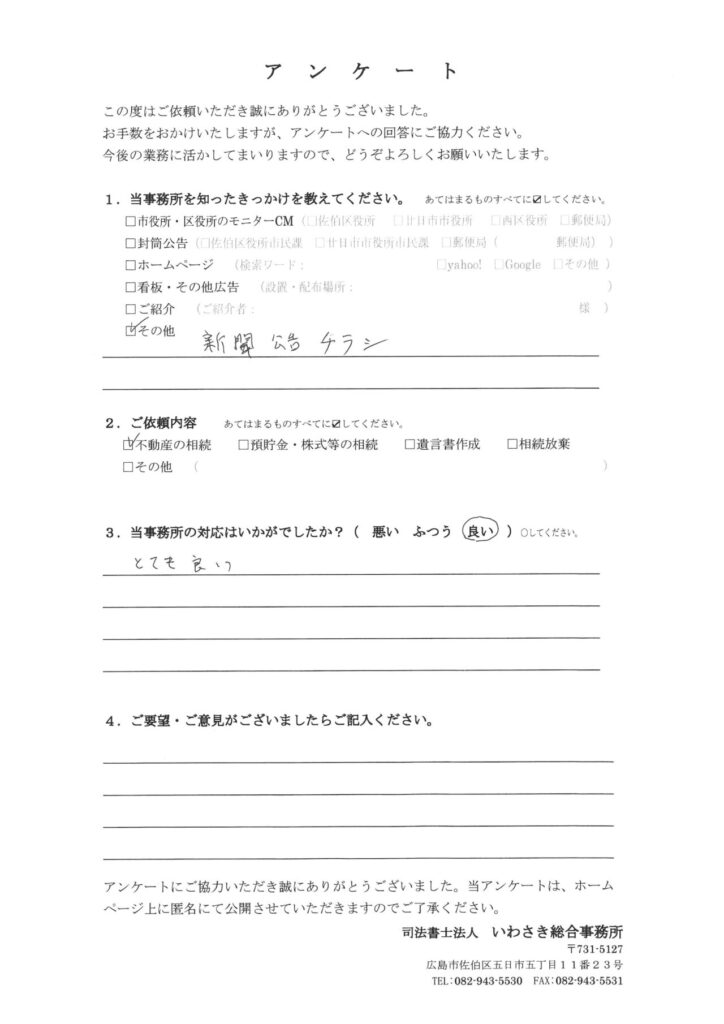 アンケート
この度はご依頼いただき誠にありがとうございました。
お手数をおかけいたしますが、アンケートへの回答にご協力ください。
今後の業務に活かしてまいりますので、どうぞよろしくお願いいたします。
１．当事務所を知ったきっかけを教えてください。 あてはまるものすべてに☑してください。
□市役所・区役所のモニターCM（□佐伯区役所 □廿日市市役所 □西区役所 □郵便局）
□封筒公告（□佐伯区役所市民課 □廿日市市役所市民課 □郵便局（ 郵便局））
□ホームページ （検索ワード： □yahoo! □Google □その他）
□看板・その他広告 （設置・配布場所： ）
□ご紹介 （ご紹介者： 様 ）
☑その他
新聞 公告 チラシ
２．ご依頼内容 あてはまるものすべてに☑してください。
☑不動産の相続 □預貯金・株式等の相続 □遺言書作成 □相続放棄
□その他 （ ）
３．当事務所の対応はいかがでしたか？（ 悪い ふつう 良い ）○してください。
とても 良い
４．ご要望・ご意見がございましたらご記入ください。
アンケートにご協力いただき誠にありがとうございました。当アンケートは、ホーム
ページ上に匿名にて公開させていただきますのでご了承ください。
司法書士法人 いわさき総合事務所
〒731-5127
広島市佐伯区五日市五丁目１１番２３号
TEL：082-943-5530 FAX：082-943-5531